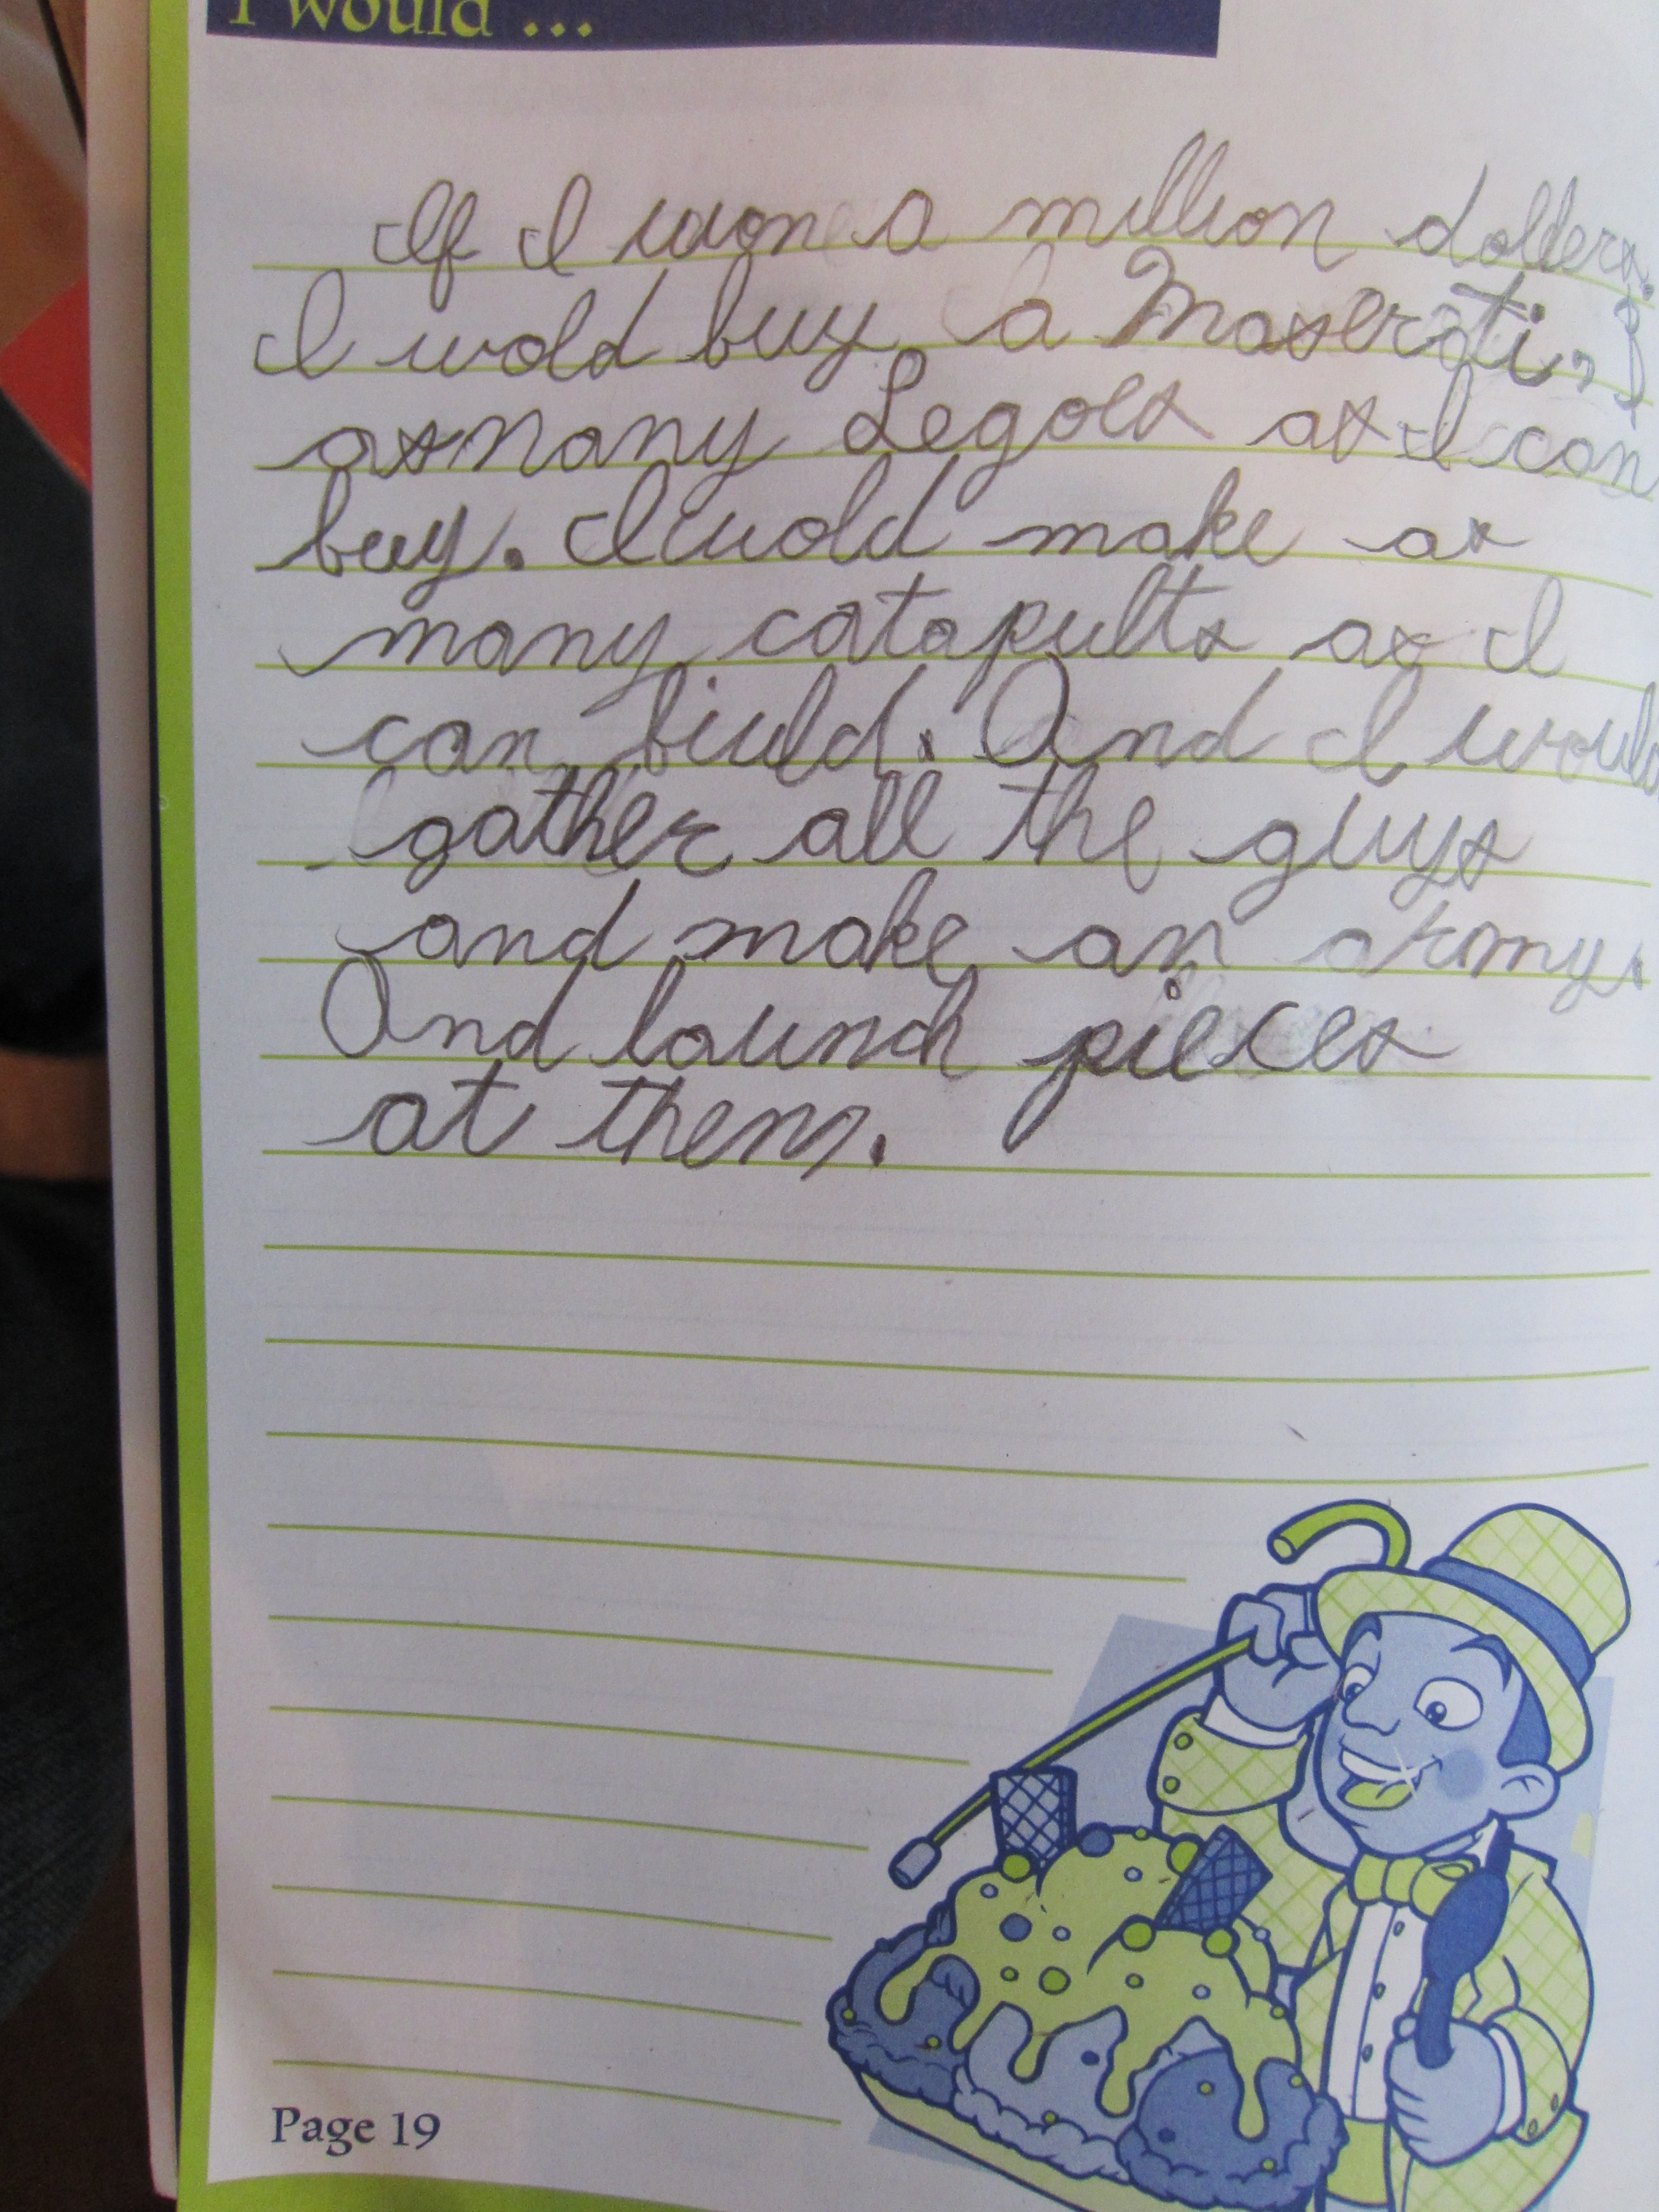 I would ...
If I won a million dollers.
I wold buy a Maserati, &
as many Legoes as I can
buy. I wold make as
many catapults as I
can biuld. And I would
gather all the guys
and make an army.
And launch pieces
at them.
Page 19